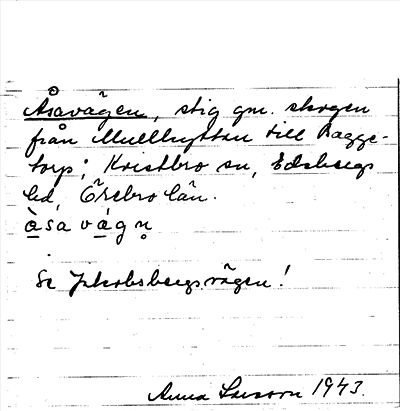 Åsavägen, stig gm. skogen
från Mullhyttan till Ragge-
torp; Kvistbro sn, Edsbergs
hd, Örebro län.
å̀savä́gn̥
Se Jakobsbergsvägen!
Anna Larsson 1943.